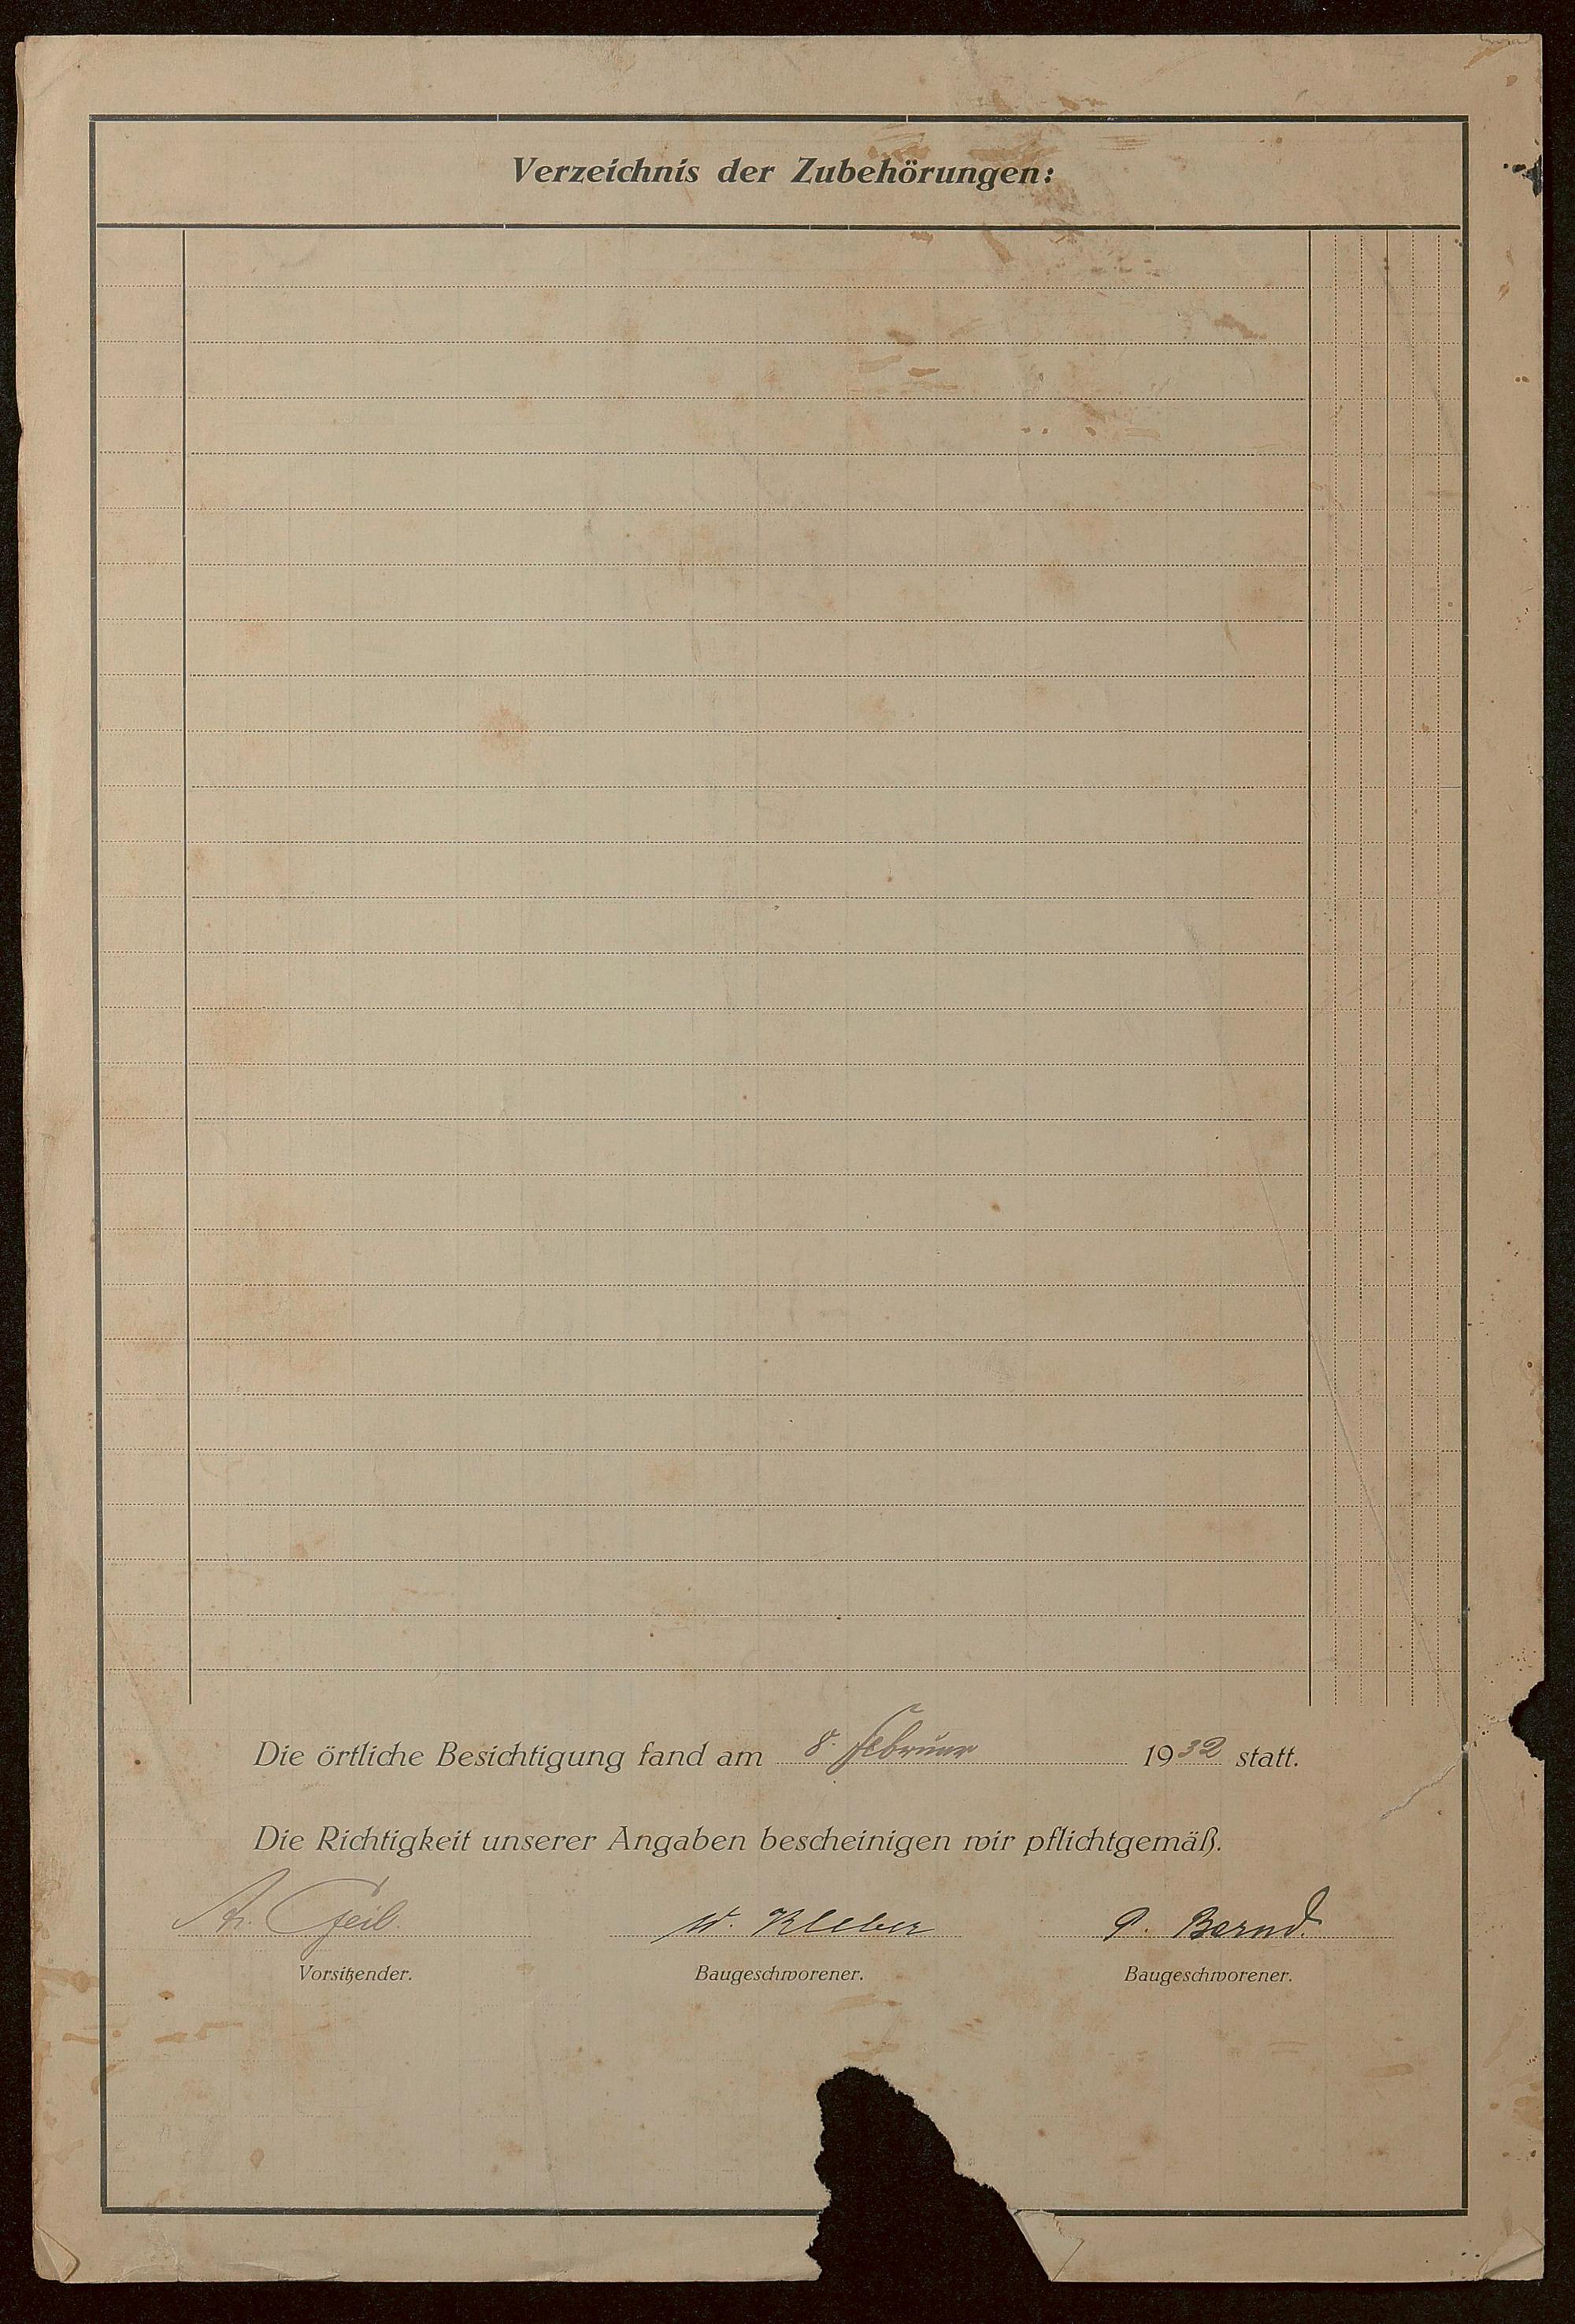 Verzeichnis der Zubehörungen:
Die örtliche Besichtigung fand am 8. Februar 1932 statt.
Die Richtigkeit unserer Angaben bescheinigen wir pflichtgemäß.
Geib. W. Kleber P. Bernd.
Vorsitzender. Baugeschworener. Baugeschworener.